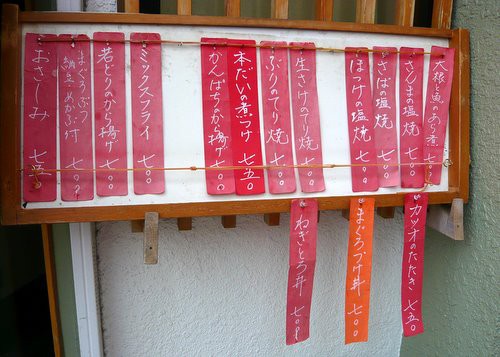 大根と魚のあら煮 七〇〇
さんまの塩焼 七〇〇
さばの塩焼 七〇〇
ほっけの塩焼 七〇〇
生さけのてり焼 七〇〇
ぶりのてり焼 七〇〇
本だいの煮つけ 七五〇
かんぱちのから揚げ 七〇〇
ミックスフライ 七〇〇
若とりのから揚げ 七〇〇
まぐろぶつ
納豆・めかぶ付 七〇〇
おさしみ 七五〇
カツオのたたき 七五〇
まぐろづけ丼 七〇〇
ねぎとろ丼 七〇〇